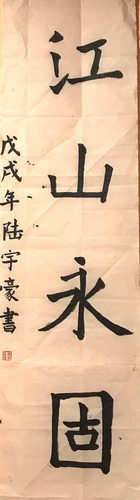 江山永固
戊戌年陆宇豪書